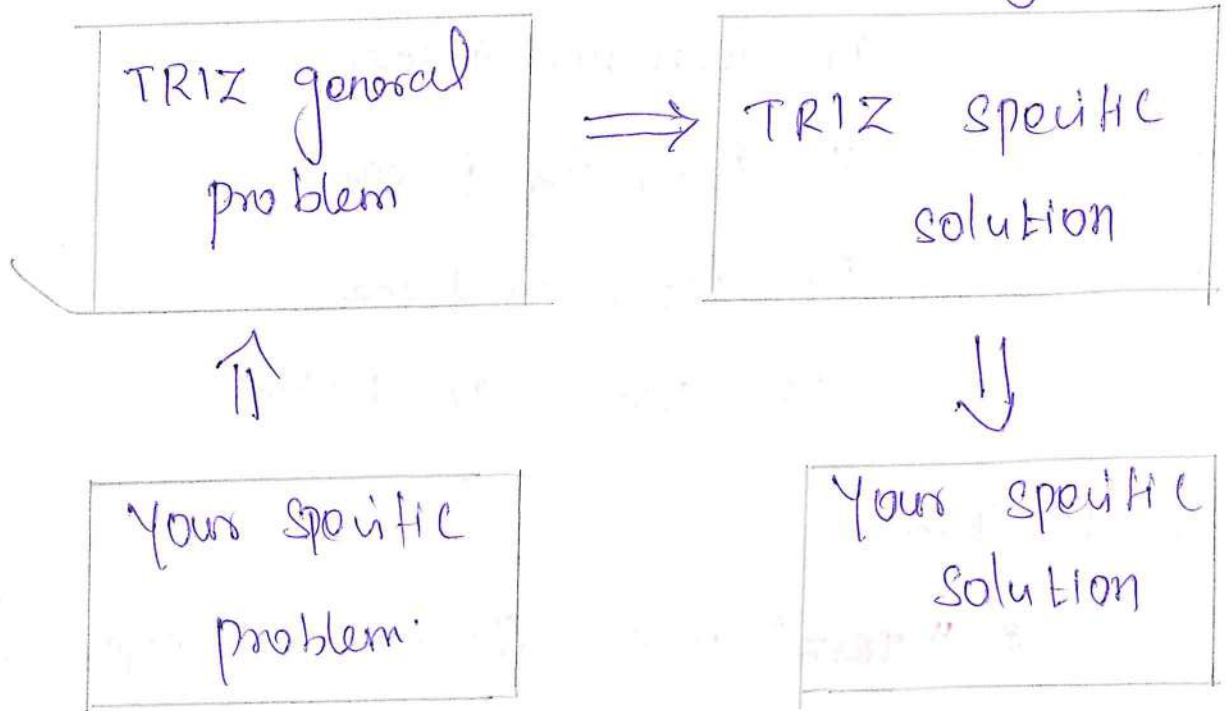 TRIZ general
problem
TRIZ specific
solution
Your specific
problem.
Your specific
solution